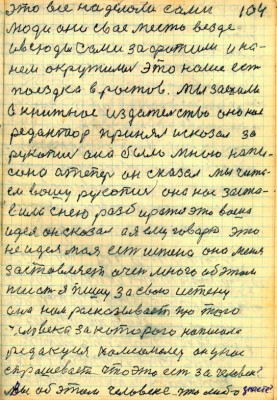 104
это все наделоли сами
люди они свае место везде
и всюды сами захватили и на
нем окружили Это наше ест
поездка в ростов. мы заехали
в книжное издателство она нас
редактор принял исказал за
рукапис она было мною напи-
сано атепер он сказал мы чита-
ем вашу рукопис она нас заста-
вила снею разбиратся это ваша
идея он сказал а я ему говарю это
не идея мая ест истена она меня
заставляет очен много об этом
писат я пишу за свою истену
она нам расказывает про того
человека за которого написала
редакция каписалему он у нас
спрашивает что это ест за человек?
Мы об этом человеке что либо знаете